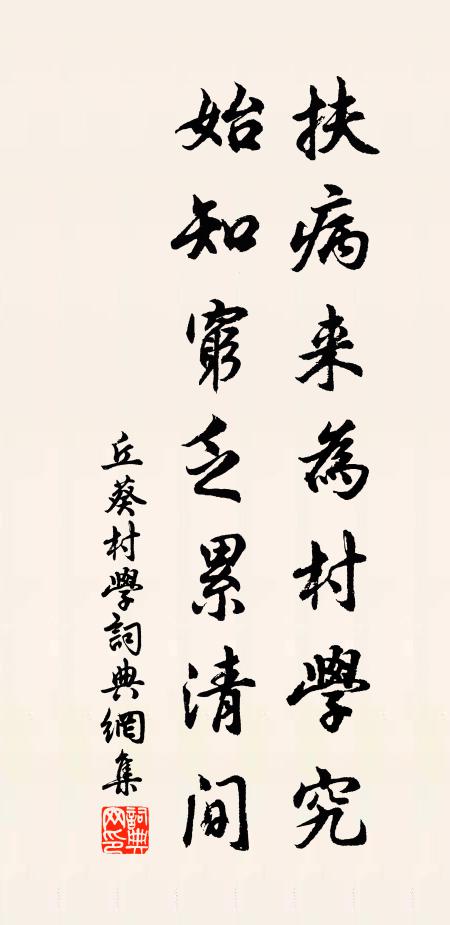 扶病来為村學究
始知窮乏累清间
丘葵村學詞典網集
詞典网印